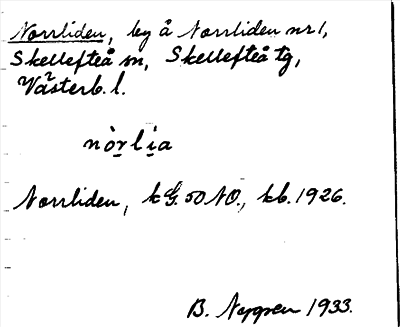 Norrliden, by å Norrliden nr 1,
Skellefteå sn, Skellefteå tg,
Västerb. l.
nòrlia
Norrliden, 50 NO., kb. 1926.
B. 1933.